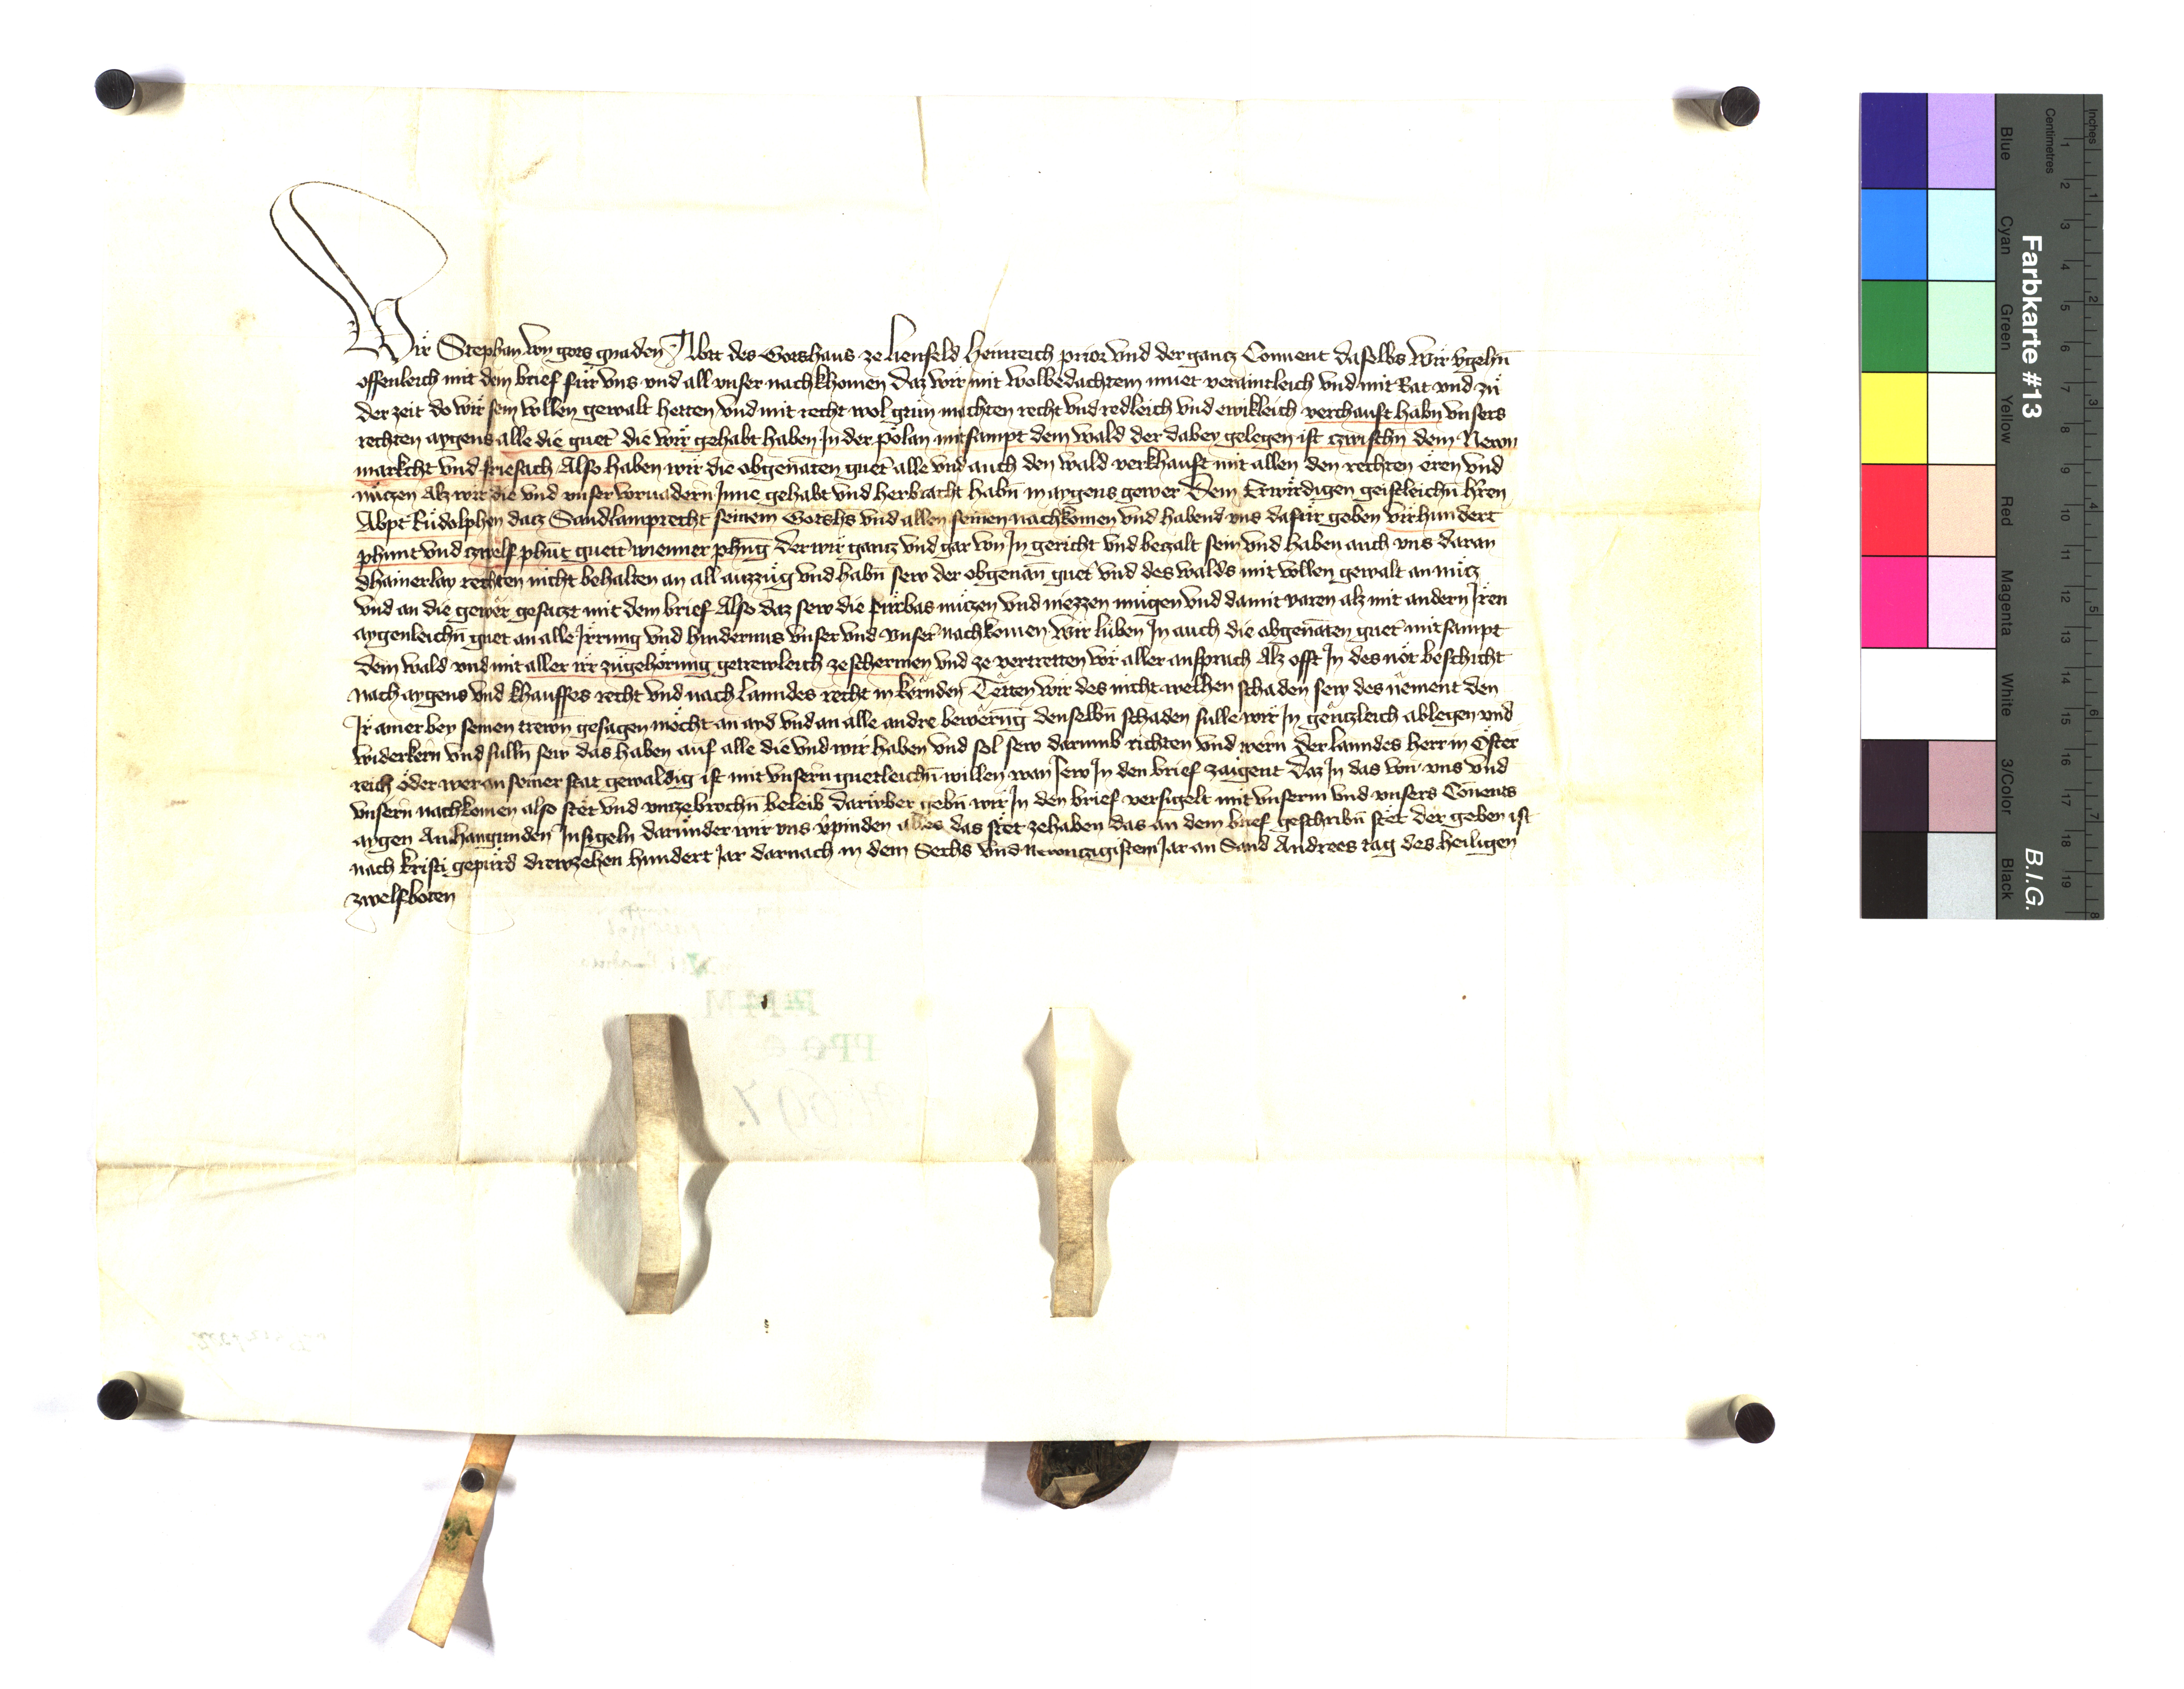 Wir Stephan von gots gnaden Abtt des Gotshaus ze lienfeld heinreich prior vnd der gantz Conuent daselbs Wir vgehn̄
offenleich mit dem brief für vns vnd all vnser nachkhomen daz wir mit wolbedachtem muet veraintleich vnd mit Rat vnd zů
der zeit do wir sein vollen gewalt hetten vnd mit recht wol getůn mechten recht vnd redleich vnd ewikleich verchauft habn vnsers
rechten aygens alle die guet die wir gehabt haben In der pölan mitsampt dem wald der dabey gelegen ist czwischn dem Newn
markcht vnd friesach Also haben wir die obgenāten guet alle vnd auch den wald verkhauft mit allen den rechten ëren vnd
nützen alz wir die vnd vnser voruadern Inne gehabt vnd herbracht habn̄ in aygens gewer Dem Erwirdigen geistleichn̄ hr̄en
Abpt Rüdolphen datz Sandlamprecht seinem Gotshs vnd allen seinen nachkomen vnd habend vns dafür geben virhundert
phunt vnd czwelf phūt guett wienner phn̄g der wir gantz vnd gar von In gericht vnd betzalt sein vnd haben auch vns daran
dhainerlay rechten nicht behalten an all auzzüg vnd habn̄ sew der obgenan̄ guet vnd des walds mit vollen gewalt an nütz
vnd an die gewër gesatzt mit dem brief Also daz sew die fürbas nützen vnd niezzen mügen vnd damit varen alz mit andern Iren
aygenleichn̄ guet an alle Irrung vnd hindernus vnser vnd vnser nachkomen Wir lüben In auch die obgenāten guet mitsampt
dem wald vnd mit aller ir zügehörung getrewleich ze schermen vnd ze vertretten vor aller ansprach Alz offt In des nöt beschicht
nach aygens vnd khauffes recht vnd nach lanndes recht in kërnden Tëtten wir des nicht welhen schaden sew des nëment den
Ir ainer bey seinen trewn̄ gesagen möcht an ayd vnd an alle andre bewërūg denselbn̄ schaden sulle wir In gëntzleich ablegen vnd
widerkern vnd sulln̄ sew das haben auf alle die vnd wir haben vnd sol sew darumb richten vnd wern der lanndes herr in Öster
reich oder wer an seiner stat gewaldig ist mit vnsern guetleichn̄ willen wan sew In den brief zaigent daz In das von vns vnd
vnsern nachkomen also stët vnd vnzebrochn̄ beleib darüber gebn̄ wir In den brief versigelt mit vnserm vnd vnsers Cōuents
aygen Anhangunden Insigeln darunder wir vns v̄pinden alles das stët zehaben das an dem brief geschribn̄ stët der geben ist
nach kristi gepürd drewzehen hundert Jar darnach in dem Sechs vnd Newntzigistem Jar an Sand Andrees tag des heiligen
zwelfboten
Farbkarte #13
B.I.G.
Centimetres
Inches
Blue
Cyan
Green
Yellow
Red
Magenta
White
3/Color
Black